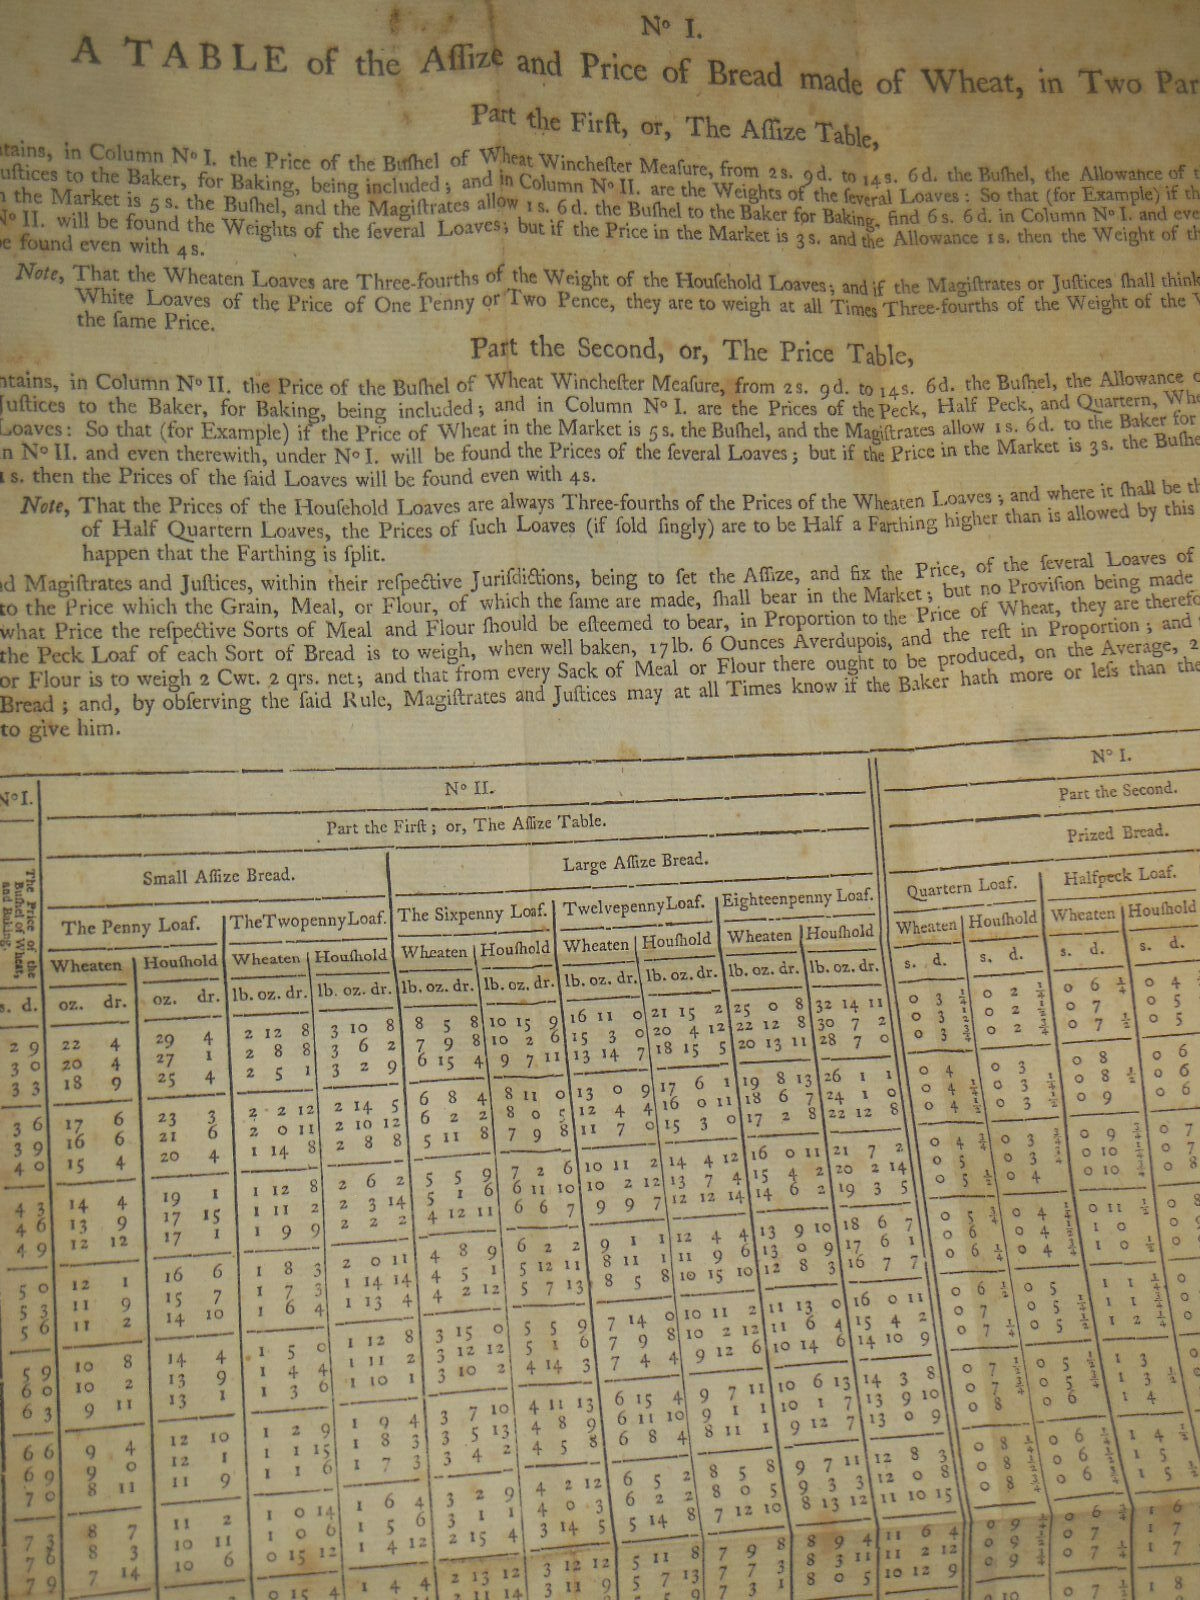 Nº I.
A TABLE of the Aſſize and Price of Bread made of Wheat, in Two Par
Part the Firſt, or, The Aſſize Table,
tains, in Column Nº I. the Price of the Buſhel of Wheat Wincheſter Meaſure, from 2 s. 9 d. to 14 s. 6 d. the Buſhel, the Allowance of t
uſtices to the Baker, for Baking, being included; and in Column Nº II. are the Weights of the ſeveral Loaves: So that (for Example) if th
n the Market is 5 s. the Buſhel, and the Magiſtrates allow 1 s. 6 d. the Buſhel to the Baker for Baking, find 6 s. 6 d. in Column Nº I. and eve
Nº II. will be found the Weights of the ſeveral Loaves; but if the Price in the Market is 3 s. and the Allowance 1 s. then the Weight of th
e found even with 4 s.
Note, That the Wheaten Loaves are Three-fourths of the Weight of the Houſehold Loaves; and if the Magiſtrates or Juſtices ſhall think
White Loaves of the Price of One Penny or Two Pence, they are to weigh at all Times Three-fourths of the Weight of the
the ſame Price.
Part the Second, or, The Price Table,
ntains, in Column Nº II. the Price of the Buſhel of Wheat Wincheſter Meaſure, from 2 s. 9 d. to 14 s. 6 d. the Buſhel, the Allowance
Juſtices to the Baker, for Baking, being included; and in Column Nº I. are the Prices of the Peck, Half Peck, and Quartern, Whe
Loaves: So that (for Example) if the Price of Wheat in the Market is 5 s. the Buſhel, and the Magiſtrates allow 1 s. 6 d. to the Baker for
n Nº II. and even therewith, under Nº I. will be found the Prices of the ſeveral Loaves; but if the Price in the Market is 3 s. the Buſhe
1 s. then the Prices of the ſaid Loaves will be found even with 4 s.
Note, That the Prices of the Houſehold Loaves are always Three-fourths of the Prices of the Wheaten Loaves; and where it ſhall be th
of Half Quartern Loaves, the Prices of ſuch Loaves (if ſold ſingly) are to be Half a Farthing higher than is allowed by this
happen that the Farthing is ſplit.
d Magiſtrates and Juſtices, within their reſpective Juriſdictions, being to ſet the Aſſize, and fix the Price, of the ſeveral Loaves of
to the Price which the Grain, Meal, or Flour, of which the ſame are made, ſhall bear in the Market; but no Proviſion being made
what Price the reſpective Sorts of Meal and Flour ſhould be eſteemed to bear, in Proportion to the Price of Wheat, they are therefo
the Peck Loaf of each Sort of Bread is to weigh, when well baken, 17 lb. 6 Ounces Averdupois, and the reſt in Proportion; and
or Flour is to weigh 2 Cwt. 2 qrs. net; and that from every Sack of Meal or Flour there ought to be produced, on the Average, 2
Bread; and, by obſerving the ſaid Rule, Magiſtrates and Juſtices may at all Times know if the Baker hath more or leſs than the
to give him.
Nº I. Nº II. Nº I.
Part the Firſt; or, The Aſſize Table. Part the Second.
Small Aſſize Bread. Large Aſſize Bread. Prized Bread.
The Price of the Buſhel of Wheat, and Baking.
The Penny Loaf. The Twopenny Loaf. The Sixpenny Loaf. Twelvepenny Loaf. Eighteenpenny Loaf. Quartern Loaf. Halfpeck Loaf.
Wheaten Houſhold Wheaten Houſhold Wheaten Houſhold Wheaten Houſhold Wheaten Houſhold Wheaten Houſhold Wheaten Houſhold
s. d. oz. dr. oz. dr. lb. oz. dr. lb. oz. dr. lb. oz. dr. lb. oz. dr. lb. oz. dr. lb. oz. dr. lb. oz. dr. lb. oz. dr. s. d. s. d. s. d. s. d.
2 9 22 4 29 4 2 12 8 3 10 8 8 5 8 10 15 9 16 11 0 21 15 2 25 0 8 32 14 11 0 3 ¼ 0 2 ¼ 0 6 ¼ 0 4
3 0 20 4 27 1 2 8 8 3 6 2 7 9 8 10 2 6 15 3 0 20 4 12 22 12 8 30 7 2 0 3 ½ 0 2 ½ 0 7 0 5
3 3 18 9 25 4 2 5 1 3 2 9 6 15 4 9 7 11 13 14 7 18 15 5 20 13 11 28 7 0 0 3 ¾ 0 2 ¾ 0 7 ½ 0 5
3 6 17 6 23 3 2 2 12 2 14 5 6 8 4 8 11 0 13 0 9 17 6 1 19 8 13 26 1 1 0 4 0 3 0 8 0 6
3 9 16 6 21 6 2 0 11 2 10 12 6 2 2 8 0 5 12 4 4 16 0 11 18 6 7 24 1 0 0 4 ¼ 0 3 ¼ 0 8 ½ 0 6
4 0 15 4 20 4 1 14 8 2 8 8 5 11 8 7 9 8 11 7 0 15 3 0 17 2 8 22 12 8 0 4 ½ 0 3 ½ 0 9 0 6
4 3 14 4 19 1 1 12 8 2 6 2 5 5 9 7 2 6 10 11 2 14 4 12 16 0 11 21 7 2 0 4 ¾ 0 3 ¾ 0 9 ¾ 0 7
4 6 13 9 17 15 1 11 2 2 3 14 5 1 6 6 11 10 10 2 12 13 7 4 15 4 2 20 2 14 0 5 0 3 ¾ 0 10 ¼ 0 7
4 9 12 12 17 1 1 9 9 2 2 2 4 12 11 6 6 7 9 9 7 12 12 14 14 6 2 19 3 5 0 5 ½ 0 4 0 10 ¾ 0 8
5 0 12 1 16 6 1 8 3 2 0 11 4 8 9 6 2 2 9 1 1 12 4 4 13 9 10 18 6 7 0 5 ¾ 0 4 ¼ 0 11 ½ 0 8
5 3 11 9 15 7 1 7 3 1 14 14 4 5 1 5 12 11 8 11 1 11 9 6 13 0 9 17 6 1 0 6 0 4 ½ 1 0 0
5 6 11 2 14 10 1 6 4 1 13 4 4 2 12 5 7 13 8 5 8 10 15 10 12 8 3 16 7 7 0 6 ¼ 0 4 ¾ 1 0 ½ 0
5 9 10 8 14 4 1 5 0 1 12 8 3 15 0 5 5 9 7 14 0 10 11 2 11 13 0 16 0 11 0 6 ½ 0 5 1 1 ¼ 0
6 0 10 2 13 9 1 4 4 1 11 2 3 12 12 5 1 6 7 9 8 10 2 12 11 6 4 15 4 2 0 7 0 5 ¼ 1 1 ¾ 0
6 3 9 11 13 1 1 3 6 1 10 1 3 10 2 4 14 3 7 4 4 9 12 6 10 14 6 14 10 9 0 7 ¼ 0 5 ½ 1 2 ¼ 0
6 6 9 4 12 10 1 2 9 1 9 4 3 7 10 4 11 13 6 15 4 9 7 11 10 6 13 14 3 8 0 7 ½ 0 5 ½ 1 3
6 9 9 0 12 1 1 1 15 1 8 3 3 5 13 4 8 9 6 11 10 9 1 1 10 1 7 13 9 10 0 7 ¾ 0 5 ¾ 1 3 ½
7 0 8 11 11 9 1 1 6 1 7 3 3 4 2 4 5 8 6 8 4 8 11 1 9 12 7 13 0 9 0 8 0 6 1 4
7 3 8 7 11 2 1 0 14 1 6 4 3 2 9 4 2 12 6 5 2 8 5 8 9 7 11 12 8 3 0 8 ¼ 0 6 ¼ 1 4 ½
7 6 8 3 10 11 1 0 6 1 5 6 3 1 1 4 0 3 6 2 2 8 0 5 9 3 3 12 0 8 0 8 ½ 0 6 ½ 1 5
7 9 7 14 10 6 0 15 12 1 4 12 2 15 4 3 14 5 5 14 8 7 12 10 8 13 12 11 10 15 0 8 ¾ 0 6 ½ 1 5
0 15 4 1 4 4 2 13 12 3 12 12 5 11 8 7 9 8 8 9 4 11 6 4 0 9 ¼ 0 6 ¾ 1 6
3 11 9 5 7 13 7 7 3 8 3 11 11 2 12 0 9 ½ 0 7 1 7
7 3 1 8 0 5 10 12 9 0 9 ¾ 0 7 ¼ 1 7